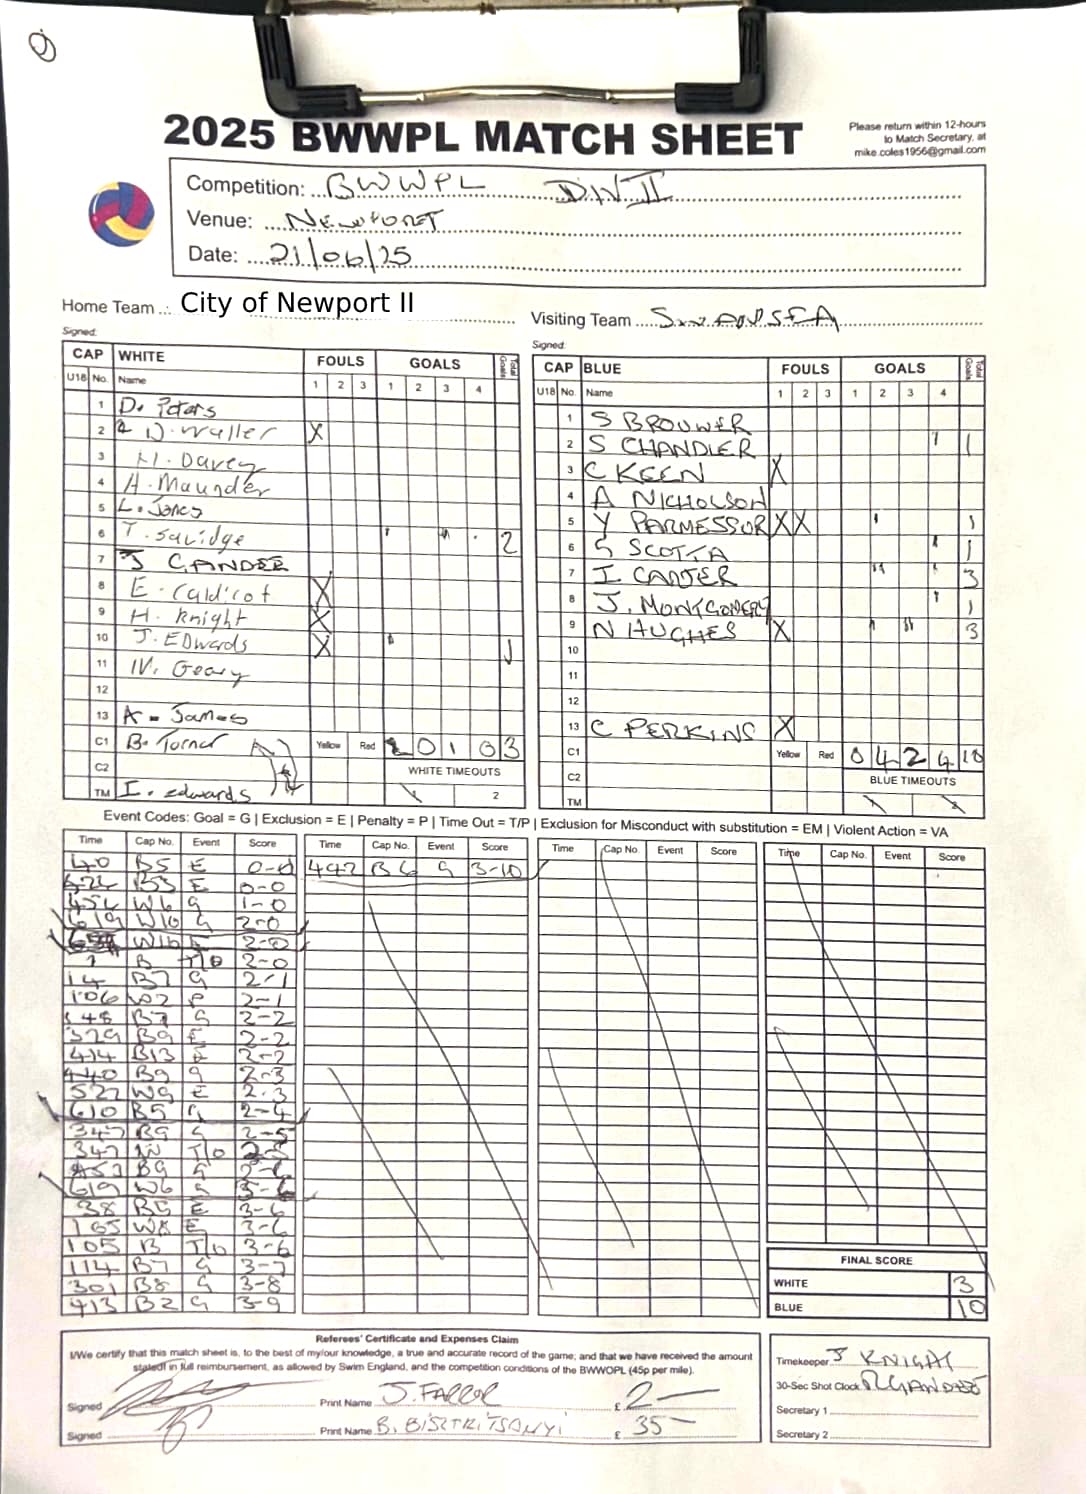 2025 BWWPL MATCH SHEET
Please return within 12-hours
to Match Secretary, at
mike.coles1956@gmail.com
Competition: BWWPL DIV II
Venue: NEWPORT
Date: 21/06/25
Home Team City of Newport II
Visiting Team SWANSEA
Signed:
Signed:
CAP WHITE FOULS GOALS Total Goals
U18 No. Name 1 2 3 1 2 3 4
1 D. Peters
2 D. Waller X
3 H. Davey
4 A. Maunder
5 L. Jones
6 T. Savidge 2
7 J CANDER
8 E. Caldicot X
9 H. Knight X
10 J. Edwards X 1
11 W. Geary
12
13 A - James
C1 B. Turner Yellow Red 2 0 1 0 3
C2 WHITE TIMEOUTS
TM I. edwards 2
CAP BLUE FOULS GOALS Total Goals
U18 No. Name 1 2 3 1 2 3 4
1 S BROUWER
2 S CHANDLER 1
3 C KEEN X
4 A NICHOLSON
5 Y PARMESSUR X X 1
6 G SCOTTA 1
7 I CARTER 3
8 J. MONTGOMERY 1
9 N HUGHES X 3
10
11
12
13 C PERKINS X
C1 Yellow Red 0 4 2 4 10
C2 BLUE TIMEOUTS
TM
Event Codes: Goal = G | Exclusion = E | Penalty = P | Time Out = T/P | Exclusion for Misconduct with substitution = EM | Violent Action = VA
Time Cap No. Event Score Time Cap No. Event Score Time Cap No. Event Score Time Cap No. Event Score
40 B5 E 0-0 447 B6 G 3-10
B3 E 0-0
454 W6 G 1-0
619 W10 G 2-0
W10 E 2-0
1 B T/O 2-0
14 B7 G 2-1
106 W2 P 2-1
148 B7 G 2-2
329 B9 E 2-2
414 B13 E 2-2
440 B9 G 2-3
527 W9 E 2-3
610 B5 G 2-4
347 B9 G 2-5
347 W T/O 2-5
453 B9 G 2-6
619 W6 G 3-6
38 B5 E 3-6
W8 E 3-6
105 B T/O 3-6
114 B7 G 3-7
301 B8 G 3-8
413 B2 G 3-9
FINAL SCORE
WHITE 3
BLUE 10
Referees' Certificate and Expenses Claim
I/We certify that this match sheet is, to the best of my/our knowledge, a true and accurate record of the game; and that we have received the amount
stated in full reimbursement, as allowed by Swim England, and the competition conditions of the BWWOPL (45p per mile).
Signed Print Name J. FARROR £ 2
Signed Print Name B. BISZTRITSANYI £ 35
Timekeeper J KNIGHT
30-Sec Shot Clock R CANDER
Secretary 1
Secretary 2